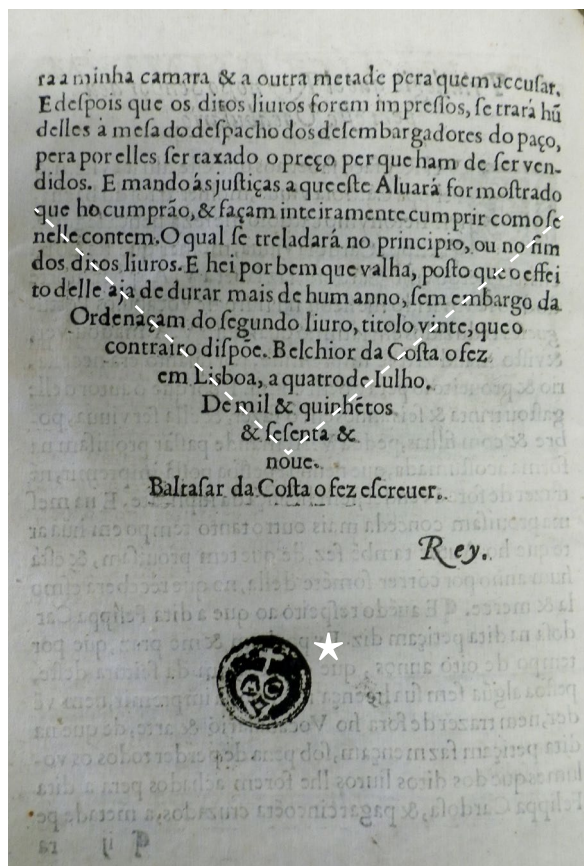 ra a minha camara & a outra metade pera quem accusar.
E despois que os ditos liuros forem impressos, se trará hũ
delles à mesa do despacho dos desembargadores do paço,
pera por elles ser taxado o preço per que ham de ser ven-
didos. E mando ás justiças a que este Aluará for mostrado
que ho cumprão, & façam inteiramente cumprir como se
nelle contem. O qual se treladará no principio, ou no fim
dos ditos liuros. E hei por bem que valha, posto que o effei
to delle aja de durar mais de hum anno, sem embargo da
Ordenaçam do segundo liuro, titolo vinte, que o
contrairo dispõe. Belchior da Costa o fez
em Lisboa, a quatro de Iulho.
De mil & quinhẽtos
& sesenta &
noue.
Baltasar da Costa o fez escreuer.
Rey.